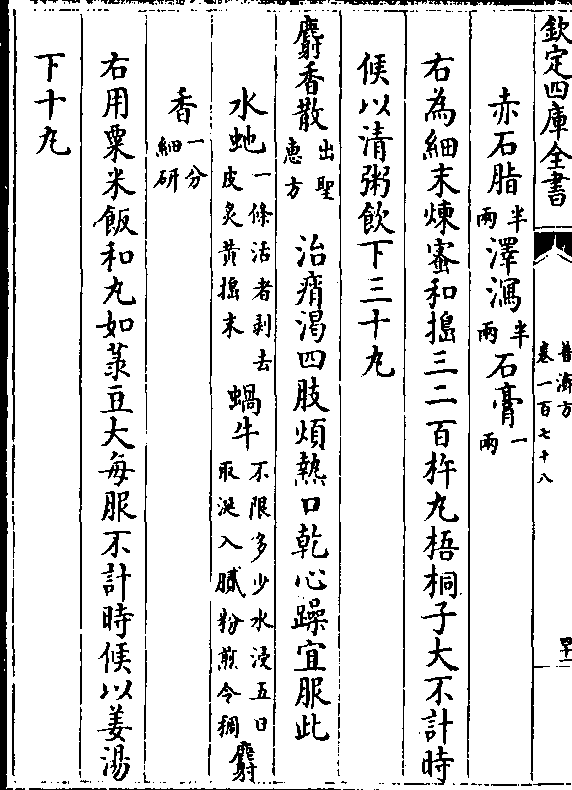 欽定四庫全書
普濟方
卷一百七十八
四十一
赤石脂半兩 澤瀉半兩 石膏一兩
右為細末煉蜜和搗三二百杵丸梧桐子大不計時
候以清粥飲下三十丸
麝香散出聖惠方 治痟渴四肢煩熱口乾心躁宜服此
水虵一條活者剥去皮炙黄搗末 蝸牛不限多少水浸五日取涎入膩粉煎令稠 麝
香一分細研
右用粟米飯和丸如菉豆大每服不計時候以姜湯
下十丸